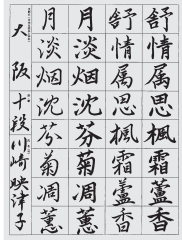 舒情属思楓霜蘆香
舒情属思楓霜蘆香
月淡烟沈芬菊凋蕙
月淡烟沈芬菊凋蕙
大阪 十段 川崎映津子